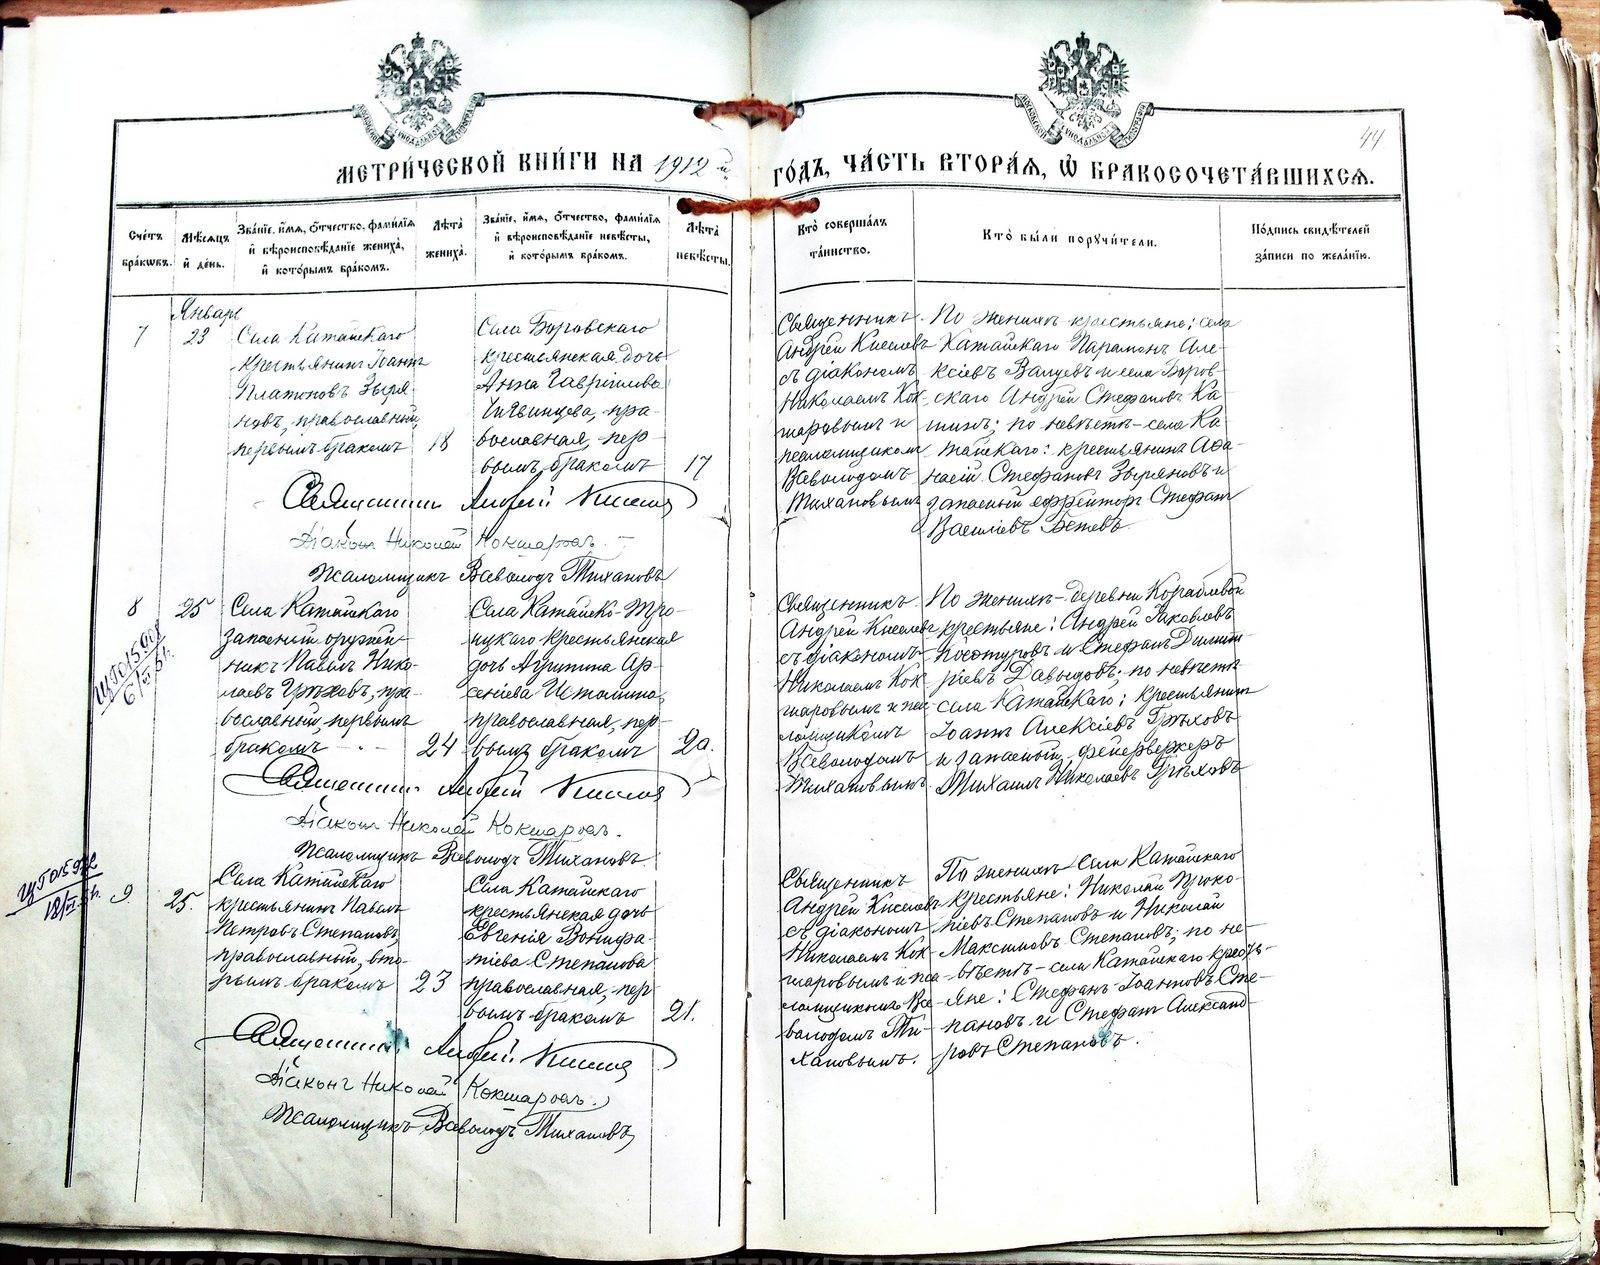 44
МЕТРИ́ЧЕСКОЙ КНИ́ГИ НА 1912 й ГО́ДЪ, ЧА́СТЬ ВТОРА́Я, Ѽ БРАКОСОЧЕТА́ВШИХСѦ.
Сче́тъ бра́кѡвъ.
Мѣ́сѧцъ и҆ де́нь.
Зва́нїе, и҆́мѧ, ѻ҆́тчество, фами́лїѧ и҆ вѣроисповѣ́данїе жениха̀, и҆ кото́рымъ бра́комъ.
Лѣ́та жениха̀.
Зва́нїе, и҆́мѧ, ѻ҆́тчество, фами́лїѧ и҆ вѣроисповѣ́данїе невѣ́сты, и҆ кото́рымъ бра́комъ.
Лѣ́та невѣ́сты.
Кто̀ соверша́лъ та́инство.
Кто̀ бы́ли пору́чители.
По́дпись свидѣ́телей за́писи по жела́нїю.
Январь
7
23
Села Катайскаго
крестьянинъ Іоаннъ
Платоновъ Зыря-
новъ, православный,
первымъ бракомъ
18
Села Боровскаго
крестьянская дочь
Анна Гавріилова
православная, пер-
вымъ бракомъ
17
Священникъ
Андрей Киселевъ
съ діакономъ
Николаемъ Кок-
шаровымъ и
псаломщикомъ
Всеволодомъ
Тихановымъ
По женихѣ крестьяне: села
Катайскаго Парамонъ Але-
ксіевъ Валуевъ и села Боров-
скаго Андрей Стефановъ Ка-
шинъ; по невѣстѣ – села Ка-
тайскаго: крестьянинъ Аѳа-
насій Стефановъ Зыряновъ и
запасный ефрейторъ Стефанъ
Василіевъ
Священникъ Андрей Киселевъ
Діаконъ Николай Кокшаровъ.
Псаломщикъ Всеволодъ Тихановъ
8
25
Села Катайскаго
запасный оружей-
никъ Павелъ Нико-
лаевъ Грѣховъ, пра-
вославный, первымъ
бракомъ
24
Села Катайско-Тро-
ицкаго крестьянская
дочь Агрипина Ар-
сеніева Истомина,
православная, пер-
вымъ бракомъ
20.
Священникъ
Андрей Киселевъ
съ діакономъ
Николаемъ Кок-
шаровымъ и пса-
ломщикомъ
Всеволодомъ
Тихановымъ.
По женихѣ – деревни Кораблевой
крестьяне: Андрей Іаковлевъ
и Стефанъ Димит-
ріевъ Давыдовъ; по невѣстѣ
села Катайскаго: крестьянинъ
Іоаннъ Алексіевъ Грѣховъ
и запасный фейерверкеръ
Михаилъ Николаевъ Грѣховъ
Священникъ Андрей Киселевъ
Діаконъ Николай Кокшаровъ.
Псаломщикъ Всеволодъ Тихановъ.
9
25.
Села Катайскаго
крестьянинъ Павелъ
Петровъ Степановъ,
православный, вто-
рымъ бракомъ
23
Села Катайскаго
крестьянская дочь
Евгенія Вонифа-
тіева Степанова
православная, пер-
вымъ бракомъ
21.
Священникъ
Андрей Киселевъ
съ діакономъ
Николаемъ Кок-
шаровымъ и пса-
ломщикомъ Все-
володомъ Ти-
хановымъ.
По женихѣ села Катайскаго
крестьяне: Николай Проко-
піевъ Степановъ и Николай
Максимовъ Степановъ; по не-
вѣстѣ – села Катайскаго кресть-
яне: Стефанъ Іоанновъ Сте-
пановъ и Стефанъ Александ-
ровъ Степановъ.
Священникъ Андрей Киселевъ
Діаконъ Николай Кокшаровъ.
Псаломщикъ Всеволодъ Тихановъ